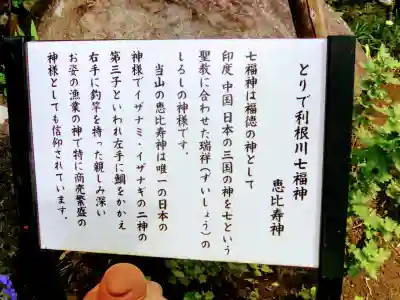 とりで利根川七福神
恵比寿神
七福神は福徳の神として
印度 中国 日本の三国の神を七という
聖教に合わせた瑞祥(ずいしょう)の
しるしの神様です.
当山の恵比寿神は唯一の日本の
神様でイザナミ・イザナギの二神の
第三子といわれ左手に鯛をかかえ
右手に釣竿を持った親しみ深い
お姿の漁業の神で特に商売繁盛の
神様としても信仰されています.